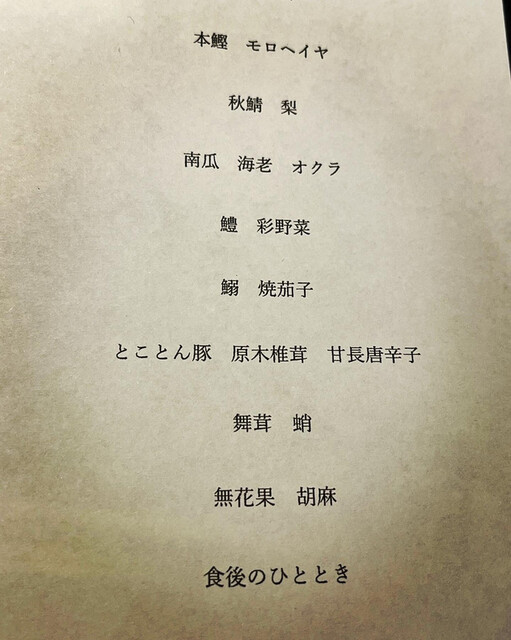 本鰹　モロヘイヤ
秋鯖　梨
南瓜　海老　オクラ
鱧　彩野菜
鰯　焼茄子
とことん豚　原木椎茸　甘長唐辛子
舞茸　蛸
無花果　胡麻
食後のひととき